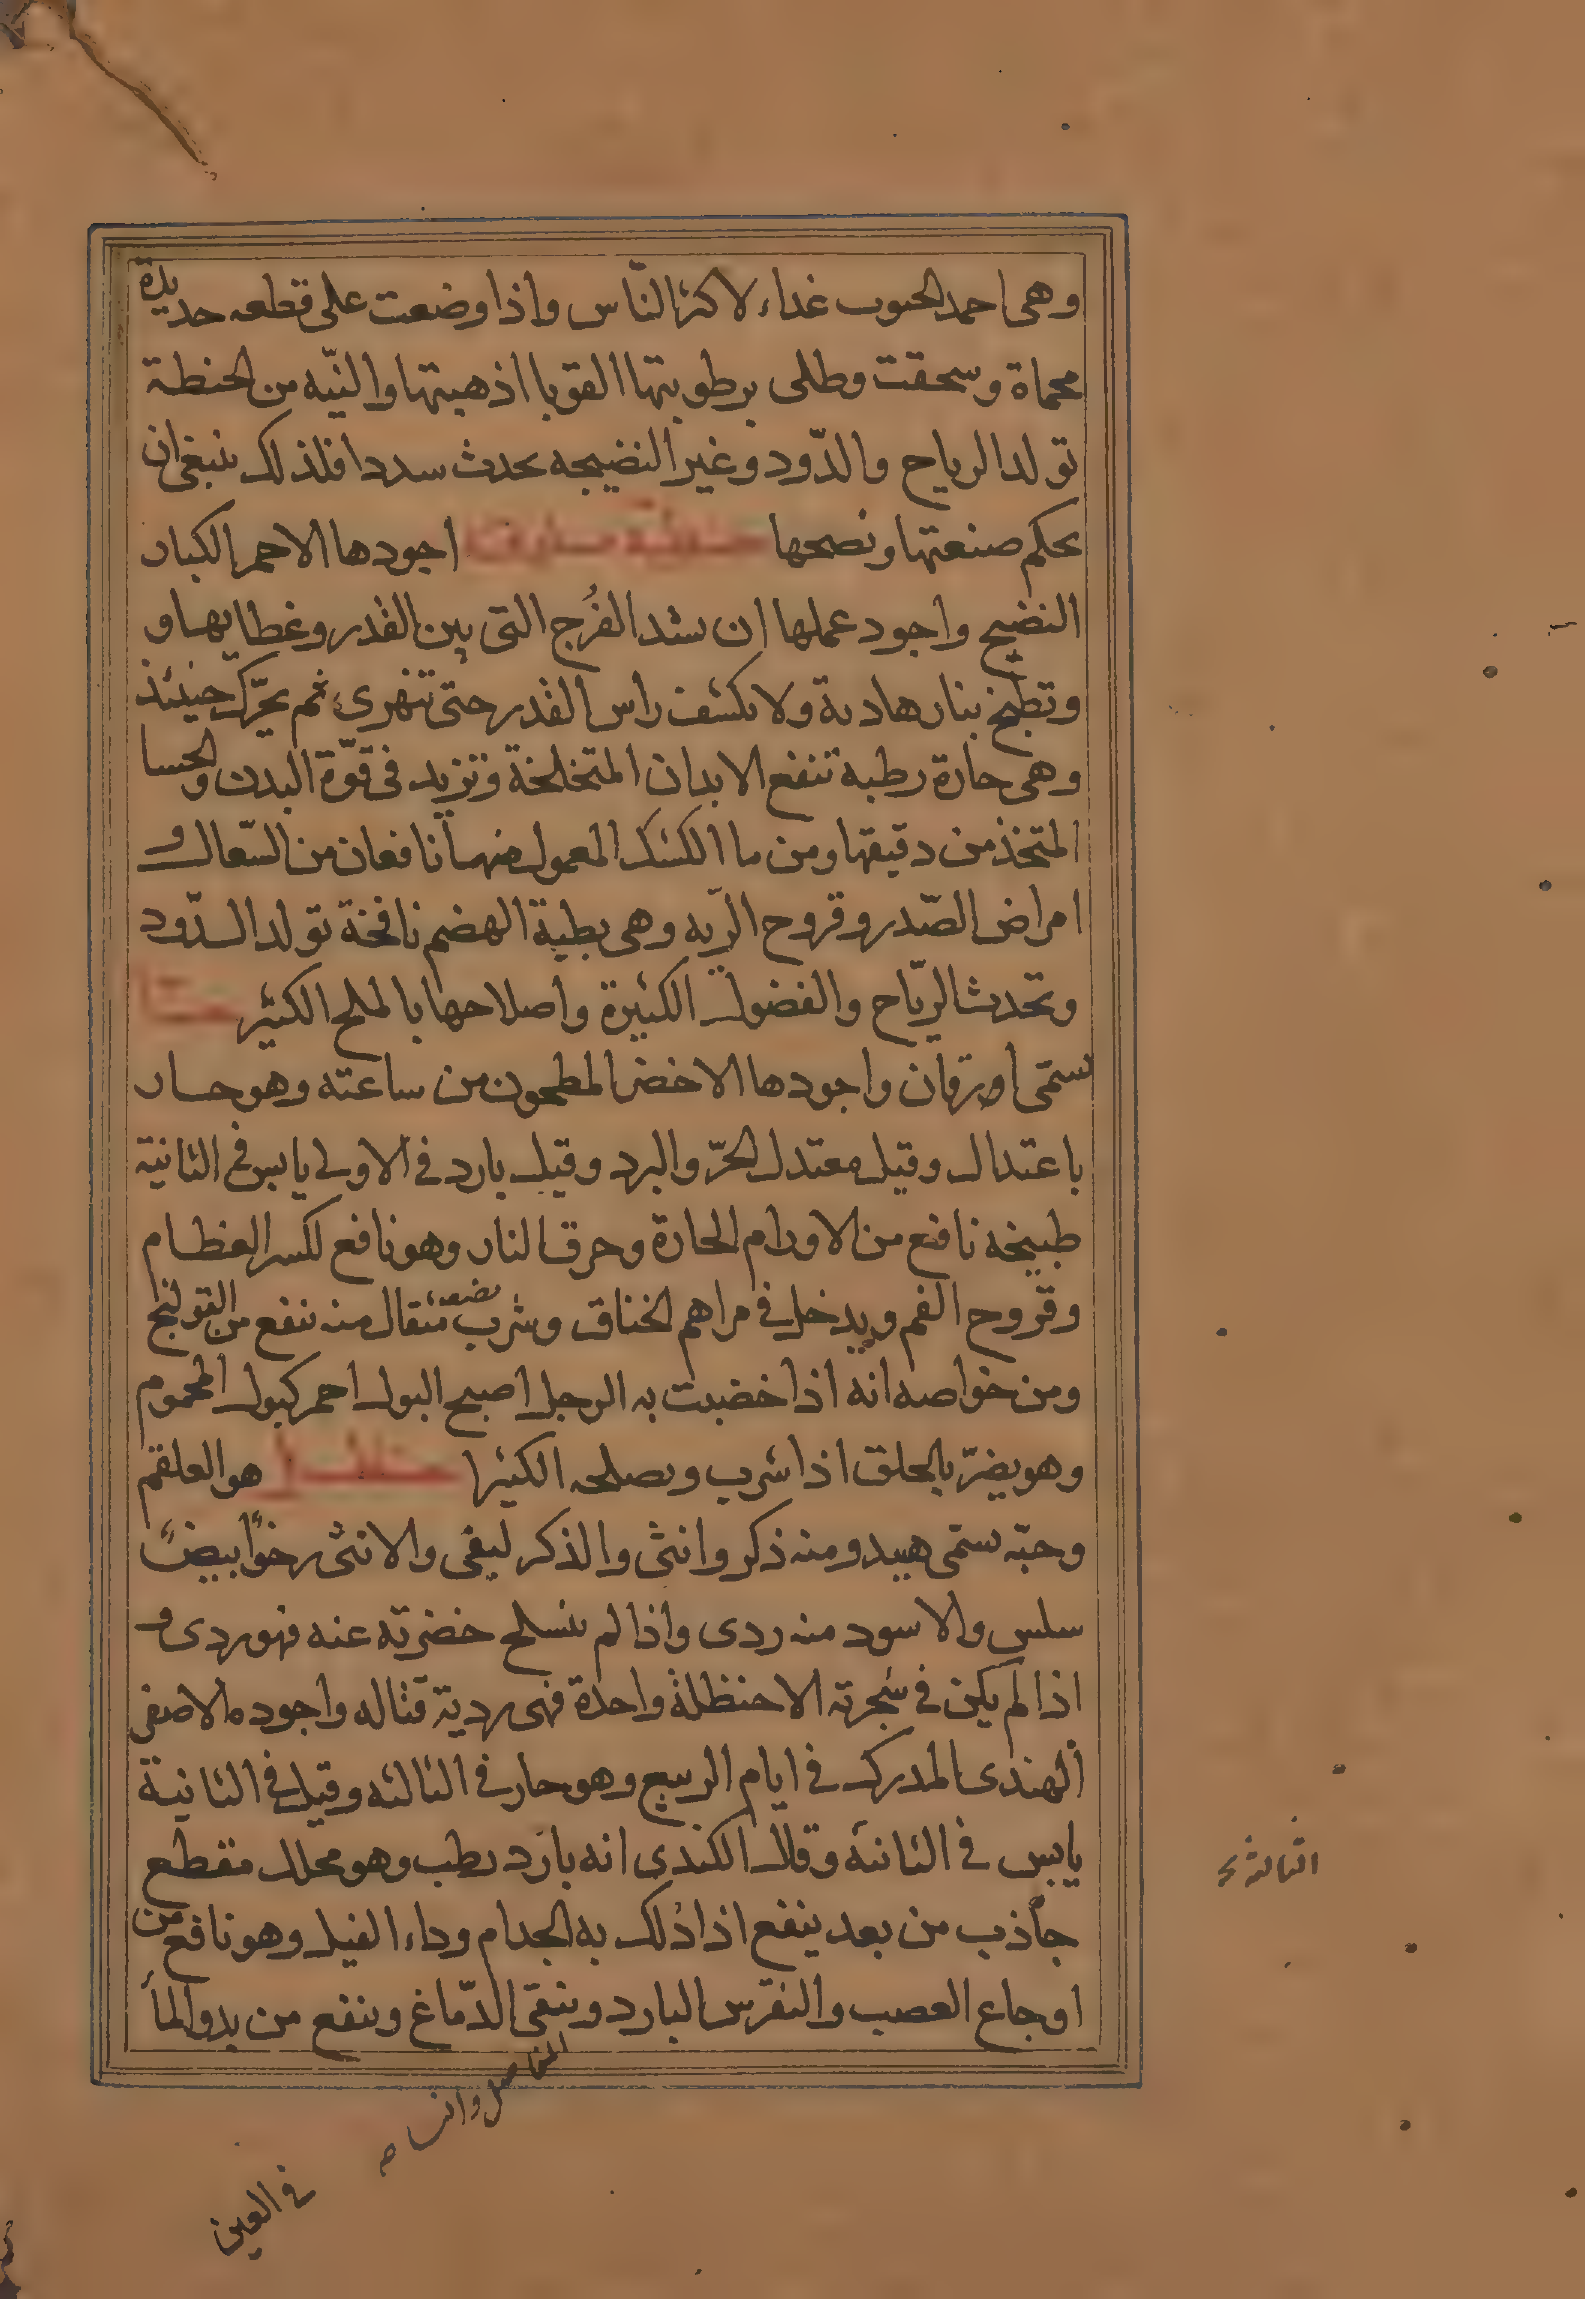 وهى احمد الحبوب غداء لاكثر النّاس واذا وضعت على قطعه حديدة
محماة وسحقت وطلى برطوبتها القوبا اذهبتها والنيّه من الحنطة
تولد الرياح والدّود وغير النضيجه يحدث سددا فلذلك ينبغى ان
يحكم صنعتها ونضجها اجودها الاحمر الكبار
النضيج واجود عملها ان يشد الفُرج التى بين القدر وغطايها و
وتطبخ بنار هادية ولا يكشف راس القدر حتى تنهرى ثم يحرّك حينئذ
وهى حارة رطبه تنفع الابدان المتخلخة وتزيد فى قوّة البدن والحسا
المتخذ من دقيقها ومن ما الكشك المعمول منهما نافعان من السّعال و
امراض الصّدر وقروح الريه وهى بطية الهضم نافخة تولد الدّود
وتحدث الريّاح والفضول الكثيرة واصلاحها بالملح الكثير حنا
يسمّى اورقان واجودها الاخضر المطحون من ساعته وهو حار
باعتدال وقيل معتدل الحرّ والبرد وقيل بارد فى الاولى يابس فى الثانية
طبيخه نافع من الاورام الحارة وحرق النار وهو نافع لكسر العظام
وقروح الفم ويدخل فى مراهم الخناق وشرب نصف مثقال منه ينفع من القولنج
ومن خواصه انه اذا خضبت به الرجل اصبح البول احمر كبول المحموم
وهو يضرّ بالحلق اذا شرب ويصلحه الكثيرا حنظل هو العلقم
وحبّه يسمّى هبيد ومنه ذكر وانثى والذكر ليفى والانثى رخوًا بيضً
سلس والاسود منه ردى واذا لم ينسلح خضرته عنه فهو ردى و
اذا لم يكن فى شجرته الا حنظلة واحدة فهى ردية قتاله واجوده الاصفر
الهندى المدرك فى ايام الربيع وهو حار فى الثالثه وقيل فى الثانية
يابس فى الثانية وقال الكندى انه بارد رطب وهو محلل مقطع
جاذب من بعد ينفع اذا دُلك به الجدام وداء الفيل وهو نافع من
اوجاع العصب والنقرس البارد وينقى الدّماغ وينفع من بدو الماأ
الثالثة
المفاصل
فى العين